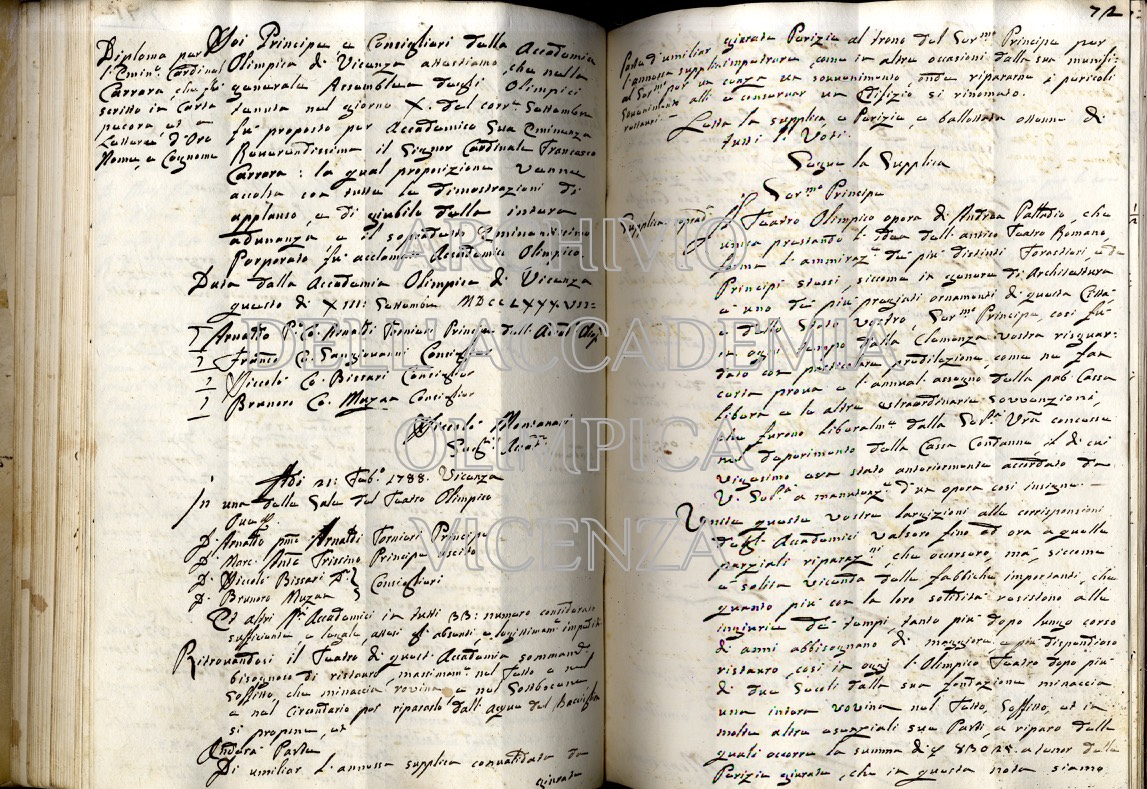 Diploma per
l'Emin. Cardinal
Carrara che fù
scritto in Carta
pecora, et a
Lettere d'Oro
Nome, e Cognome
Noi Principe, e Consiglieri della Accademia
Olimpica di Vicenza attestiamo, che nella
generale Assemblea degli Olimpici
tenuta nel giorno X. del corr.e Settembre
fu proposto per Accademico Sua Eminenza
Reverendissima il Signor Cardinale Francesco
Carrara: la qual proposizione venne
accolta con tutte le dimostrazioni di
applauso, e di giubilo dalla intera
adunanza, e il sopradetto Eminentissimo
Porporato fu acclamato Accademico Olimpico.
Data dalla Accademia Olimpica di Vicenza
questo dì XIII: Settembre MDCCLXXXVII=
Arnaldo P.o Co. Arnaldi Tornieri Principe dell'Accad. Olip.
Franc.o Co. Sangiovanni Consiglier
Niccolò Co. Bissari Consiglier
Brunoro Co. Muzan Consiglier
Niccolò Montanari
Seg.o Acc.o
Adì 21: Feb.o 1788. Vicenza
In una delle Sale del Teatro Olimpico
D. Arnaldo pmo Arnaldi Tornieri Principe
D. Marc. Ant.o Trissino Principe uscito
D. Niccolò Bissari
D. Brunoro Muzan } Consiglieri
Et altri Accademici in tutti 33: numero considerato
sufficiente e legale, attesi gl'absenti e legitimam.e impediti
Ritrovandosi il Teatro di quest'Accademia sommam.e
bisognoso di ristauro, massimam.e nel Tetto, e nel
Soffitto, che minaccia rovina, e nel Sottoscena
e nel Circondario per ripararlo dall'acque del Bacchiglion
si propone, et
Anderà Parte
Di umiliar l'annessa supplica convalidata da
giurata
72
Parte d'umiliar
l'annessa supplica
al Ser.mo per un
Sovvenimento alli
ristauri
giurata Perizia al trono del Ser.mo Principe per
impetrare, come in altre occasioni dalla sua munifi-
cenza un sovvenimento, onde riparare i pericoli
e conservar un Edifizio sì rinomato.
Letta la supplica e Perizia, e ballottata ottenne di
tutti i Voti.
Segue la Supplica
Ser.mo Principe
Supplica
Il Teatro Olimpico opera di Andrea Palladio, che
unico prestando l'idea dell'antico Teatro Romano,
forma l'ammiraz.e de' più distinti Forastieri, e de
Principi stessi, siccome in genere di Architettura
è uno dei più pregiati ornamenti di questa Città
e dello Stato Vostro, Ser.mo Principe, così fù
in ogni tempo dalla Clemenza vostra risguar-
dato con particolare predilezione, come ne fan
certa prova e l'annual assegno della pub. Cassa
libera e le altre estraordinarie sovvenzioni,
che furono liberalm.e dalla Ser.tà Vra concesse
nel deperimento della Cassa Condanne il di cui
vigesimo era stato anteriormente accordato da
V. Ser.tà a manutenz.e d'un opera così insigne.
Unite queste vostre largizioni alle corrisponsioni
degl'Accademici valsero fino ad ora a quelle
parziali riparaz.ni, che occorsero, ma, siccome
è solita vicenda delle fabbriche importanti, che
quanto più con la loro solidità resistono alle
ingiurie de' tempi, tanto più dopo lungo corso
di anni abbisognano di maggiore e più dispendioso
ristauro, così in oggi l'Olimpico Teatro dopo più
di due Secoli dalla sua fondazione minaccia
una intera rovina nel Tetto, Soffitto, et in
molte altre essenziali sue Parti, a riparo delle
quali occorre la summa di a tenor della
Perizia giurata, che in questa nota siamo
ARCHIVIO
DELL'ACCADEMIA
OLIMPICA
VICENZA